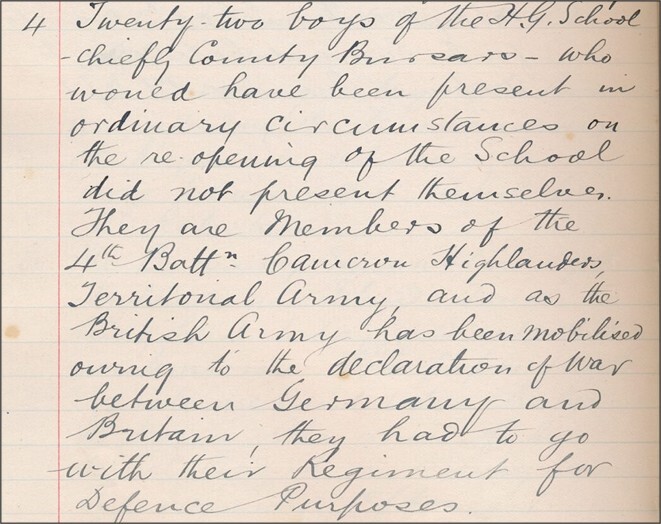 4 Twenty-two boys of the H.G. School
- chiefly County Bursars - who
would have been present in
ordinary circumstances on
the re-opening of the School
did not present themselves.
They are Members of the
4th Battn. Cameron Highlanders,
Territorial Army, and as the
British Army has been mobilised
owing to the declaration of War
between Germany and
Britain, they had to go
with their Regiment for
Defence Purposes.